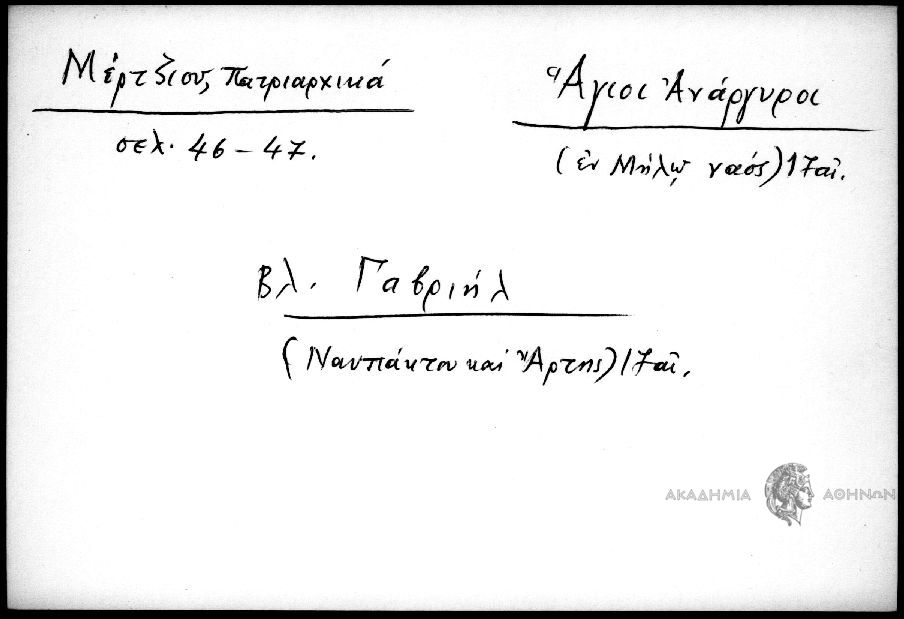 Μέρτζιου, Πατριαρχικά
σελ. 46-47.
Ἅγιοι Ἀνάργυροι
(ἐν Μήλῳ ναός) 17 αἰ.
Βλ. Γαβριήλ
(Ναυπάκτου καὶ Ἄρτης) 17 αἰ.
ΑΚΑΔΗΜΙΑ ΑΘΗΝΩΝ